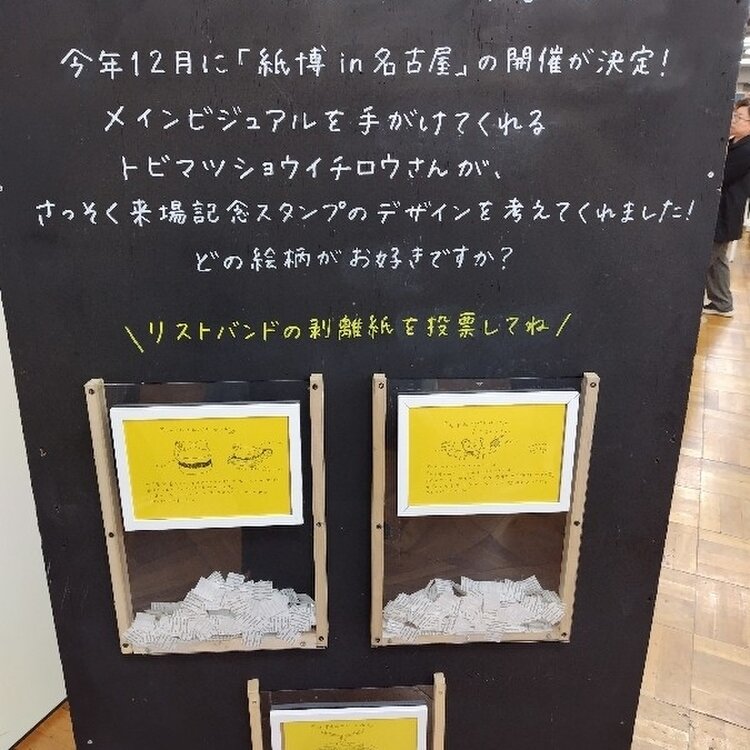 今年12月に「紙博 in 名古屋」の開催が決定!
メインビジュアルを手がけてくれる
トビマツショウイチロウさんが、
さっそく来場記念スタンプのデザインを考えてくれました!
どの絵柄がお好きですか?
\リストバンドの剥離紙を投票してね/